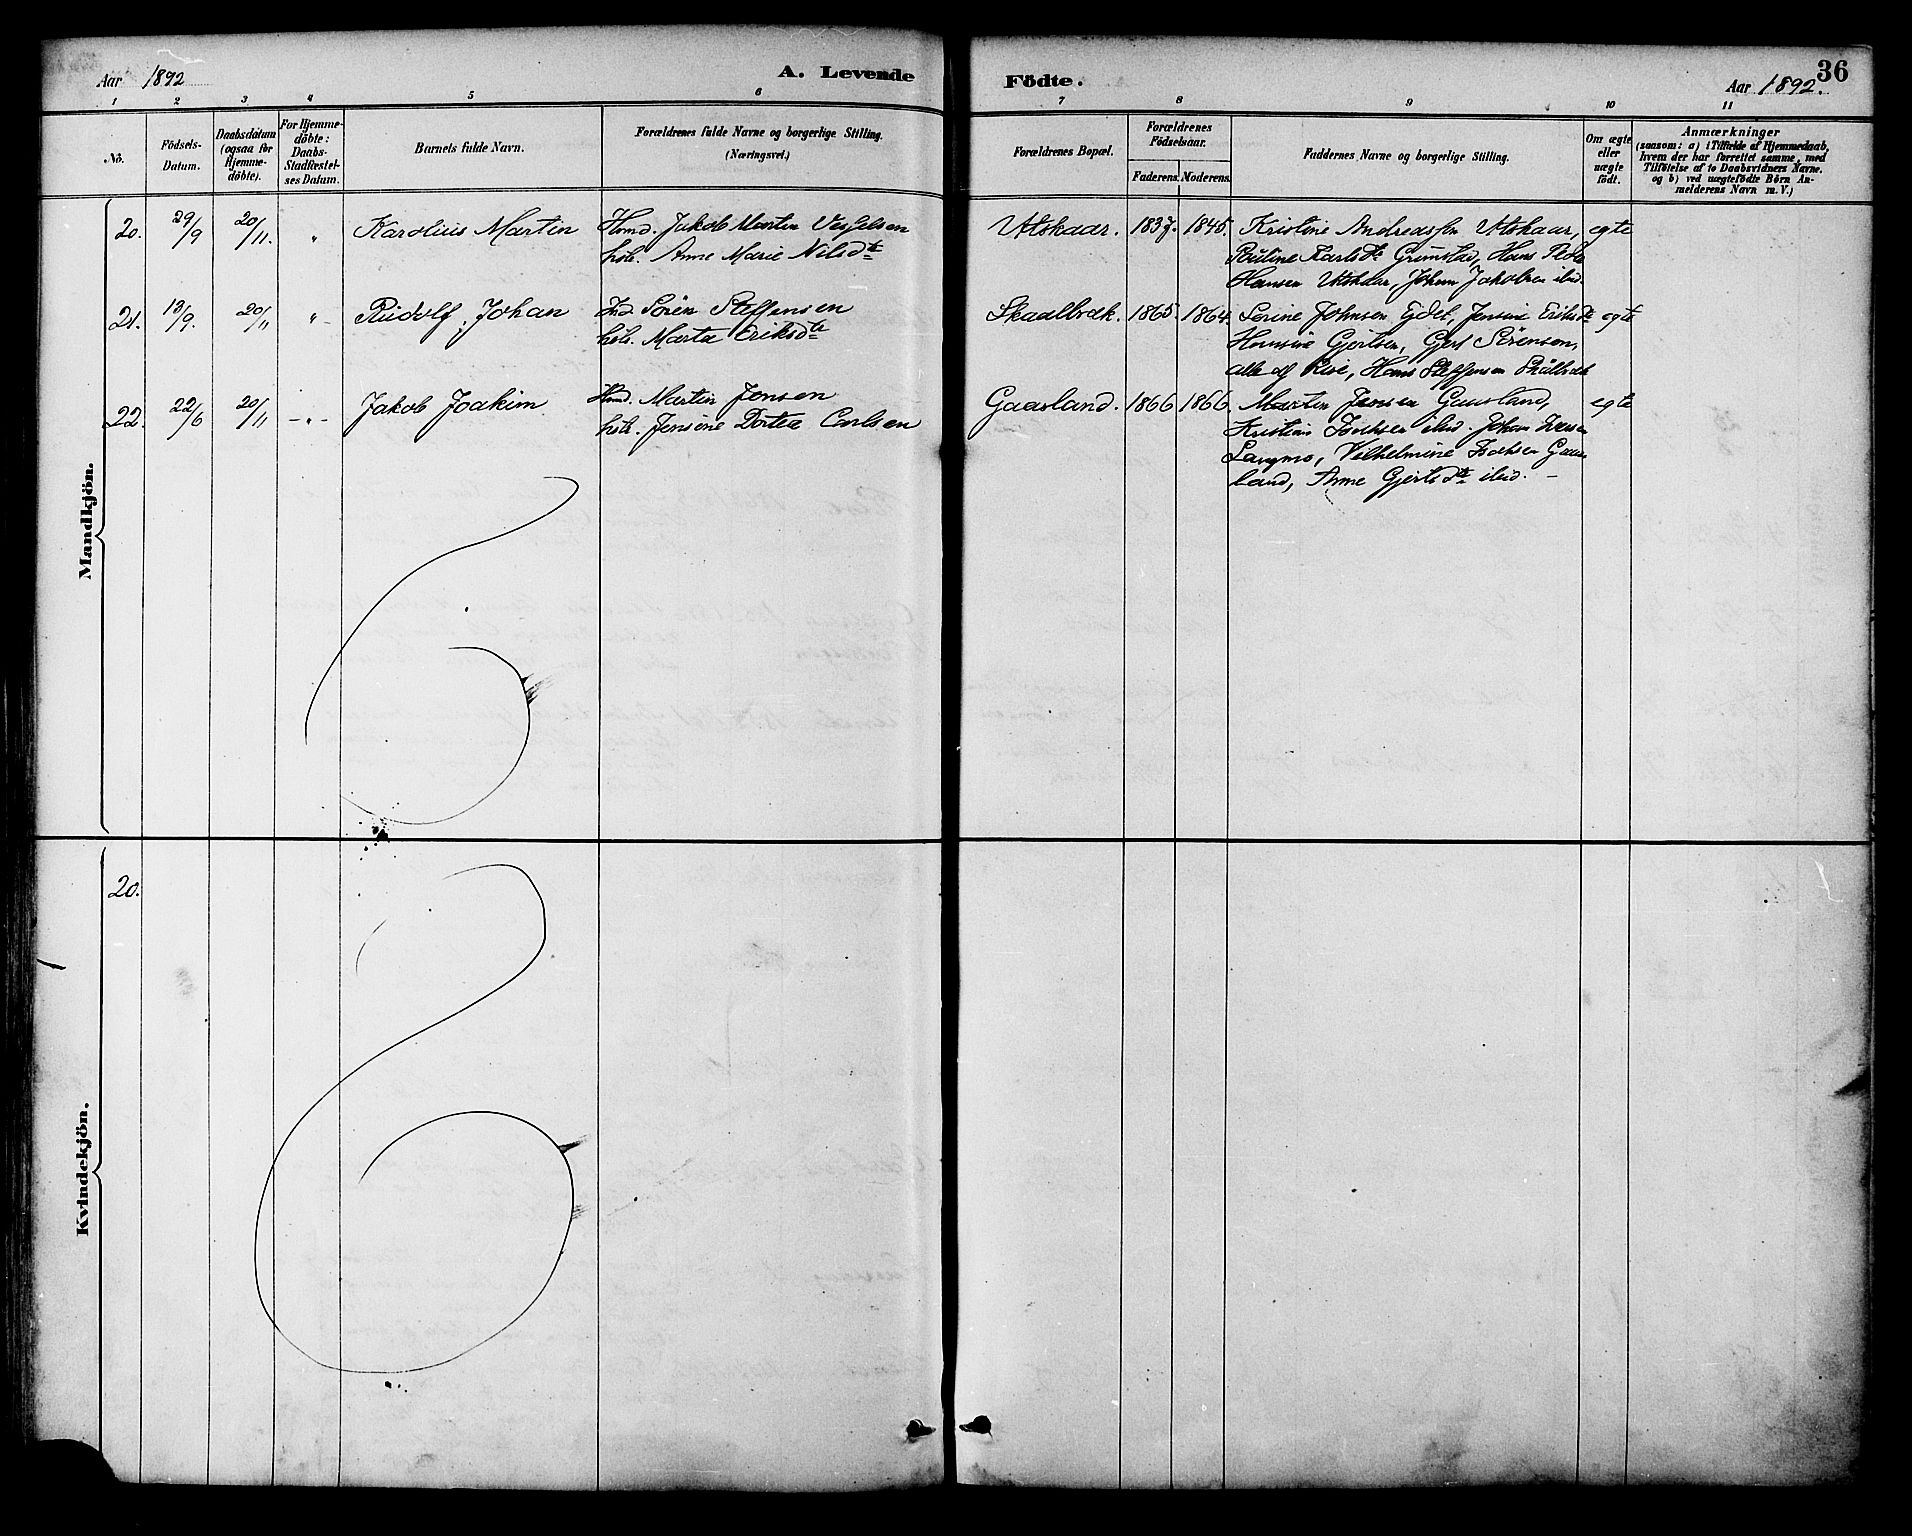 Aar 1892 A. Levende Födte. Aar 1892. 36
1 2 3 4 5 6 7 8 9 10 11
Nô. Födsels-Datum. Daabsdatum (ogsaa for Hjemme-döbte). For Hjemme-döbte: Daabs-Stadfæstel-ses Datum. Barnets fulde Navn. Forældrenes fulde Navne og borgerlige Stilling. (Næringsvei.) Forældrenes Bopæl. Forældrenes Födselsaar. Faderens. Moderens. Faddernes Navne og borgerlige Stilling. Om ægte eller uægte födt. Anmærkninger
(saasom: a) i Tilfælde af Hjemmedaab, hvem der har forrettet samme, med Tilföielse af to Daabsvidners Navne. og b) ved uægtefödte Börn An-melderens Navn m. V.)
Mandkjön.
20. 29/9 20/11. " Karolius Martin Hmd. Jakob Martin Vesselsen Utskaar. 1837. 1845. Kristine Andreassen Utskaar, egte
hstr. Anne Marie Nilsdtr Pauline Karlsdtr Grimstad, Hans Peder
Hansen Utskaar, Johan Jakobsen ibid.
21. 13/9. 20/11 " Rudolf Johan Ind. Sören Steffensen Skaalbræk. 1865. 1864. Serine Johnsen Eidet, Jensine Eriksdtr egte
hstr. Marta Eriksdtr Hansine Gjertsen, Gert Sörensen,
alle af Rise, Hans Steffensen Skålbræk
22. 22/6 20/11 - " - Jakob Joakim Hmd. Martin Jensen Gaasland. 1866 1866. Martin Jensen Gaasland, egte
hstr. Jensine Dortea Carlsen Kristian ibid. Johan
Langmo, Vilhelmine Gaas-
land, Anne Gjertsdtr ibid. -
Kvindekjön.
20.